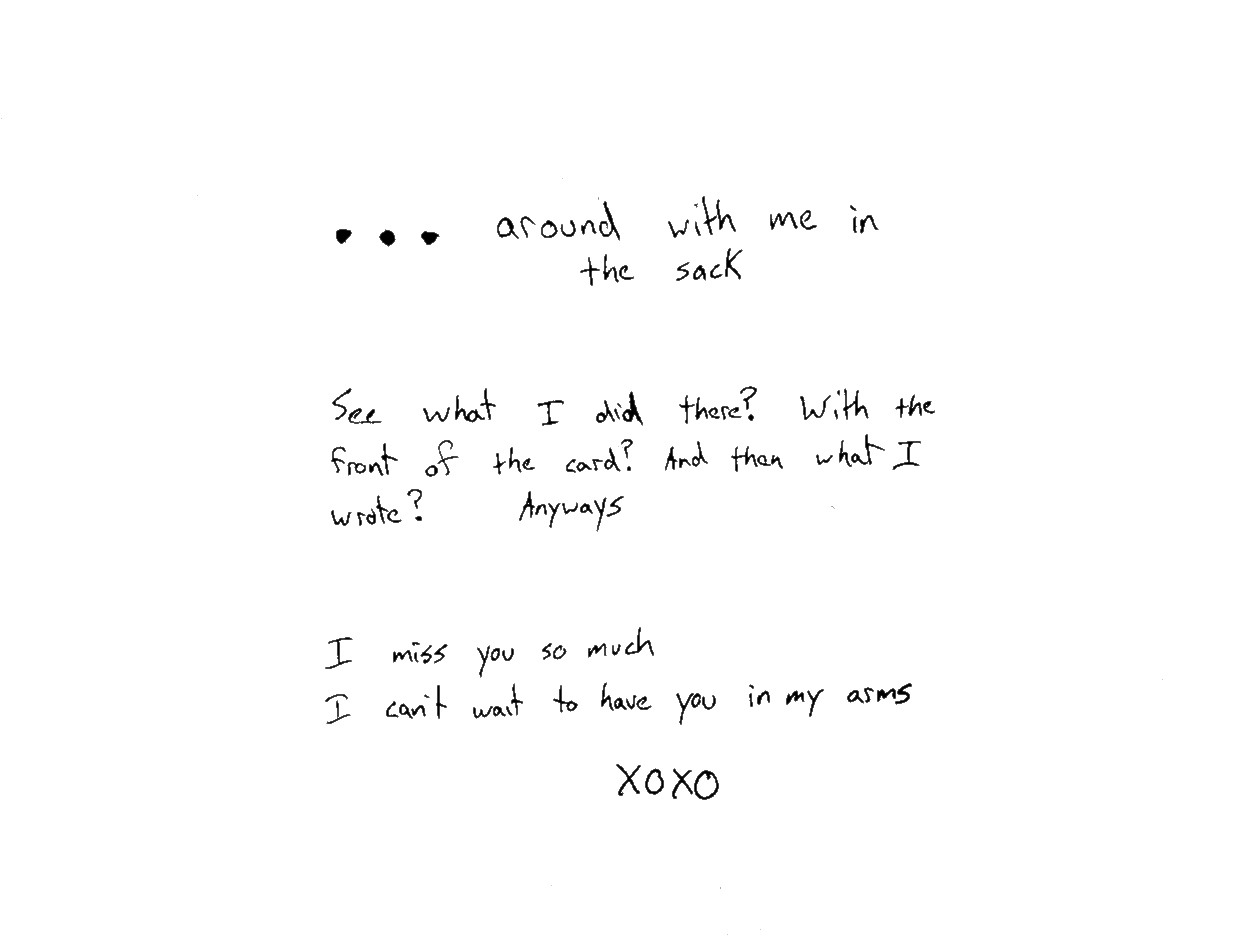 ... around with me in
the sack
See what I did there? With the
front of the card? And then what I
wrote? Anyways
I miss you so much
I can't wait to have you in my arms
XOXO